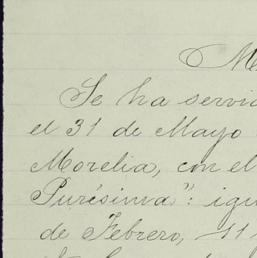 Se ha servi
el 31 de Mayo
Morelia, con el
Purísima": igu
de Febrero, 11